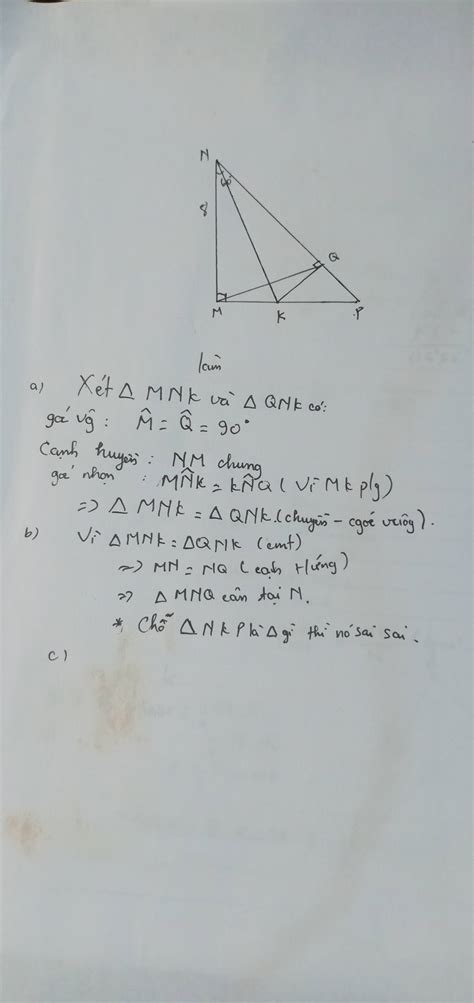 N
60°
8
Q
M
K
P
làm
a) Xét Δ MNK và Δ QNK có:
goć vg : M̂ = Q̂ = 90°
Cạnh huyền : NM chung
goć nhọn : MN̂K = KN̂Q ( Vì MK p/g )
=> Δ MNK = Δ QNK (chuyền - cgoć vuông).
b) Vì Δ MNK = Δ QNK (cmt)
=> MN = NQ ( cạnh tứng )
=> Δ MNQ cân tại N.
* Chỗ Δ NKP là Δ gì thì nó sai sai.
c)